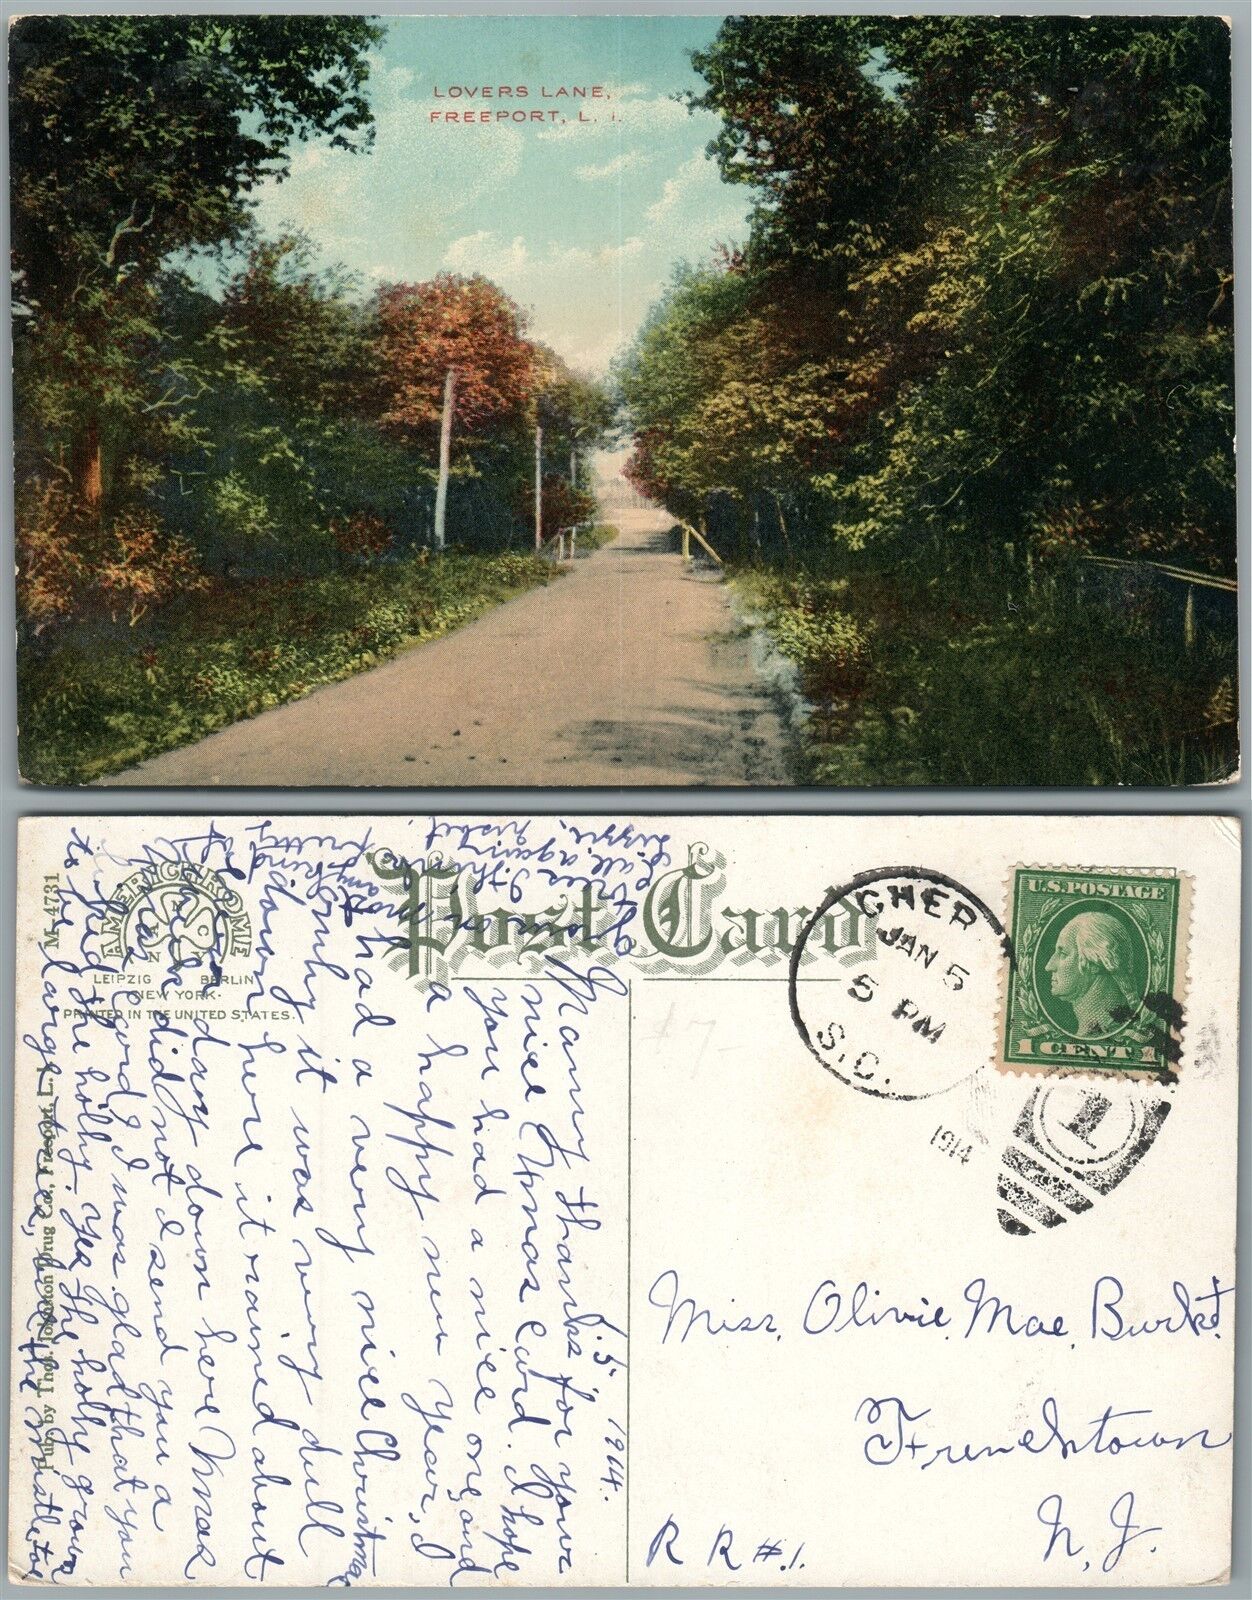 LOVERS LANE,
FREEPORT, L. I.
Post Card
AMERICHROME
LEIPZIG BERLIN
NEW YORK
PRINTED IN THE UNITED STATES.
M-4731
Pub. by Thos. Johnson Drug Co., Freeport, L. I.
CHER
JAN 5
5 PM
S.C.
1914
U.S. POSTAGE
1 CENT 1
1
#7-
1/5 1914.
Many thanks for your
nice Xmas card. I hope
you had a nice one, and
a happy new year, I
had a very nice Christmas
it was very dull
down here it rained about
day down here Xmas
did not I send you a
card, I was glad that you
liked the holly. Yes the holly grows
to be large trees, the mistletoe
Miss, Olivie, Mae, Burkt.
Frenchtown
N, J.
R R #.1.